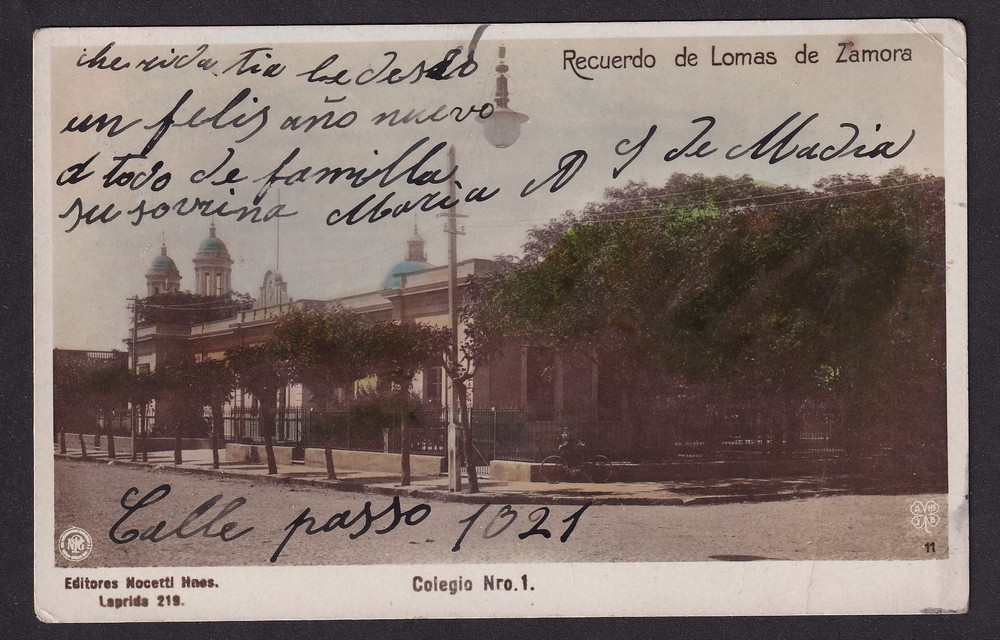 Recuerdo de Lomas de Zamora
cherida tia le deseo
un felis año nuevo
a todo de familla
su sovrina Maria A S de Madia
Calle passo 1021
11
Editores Nocetti Hnos.
Laprida 219.
Colegio Nro. 1.